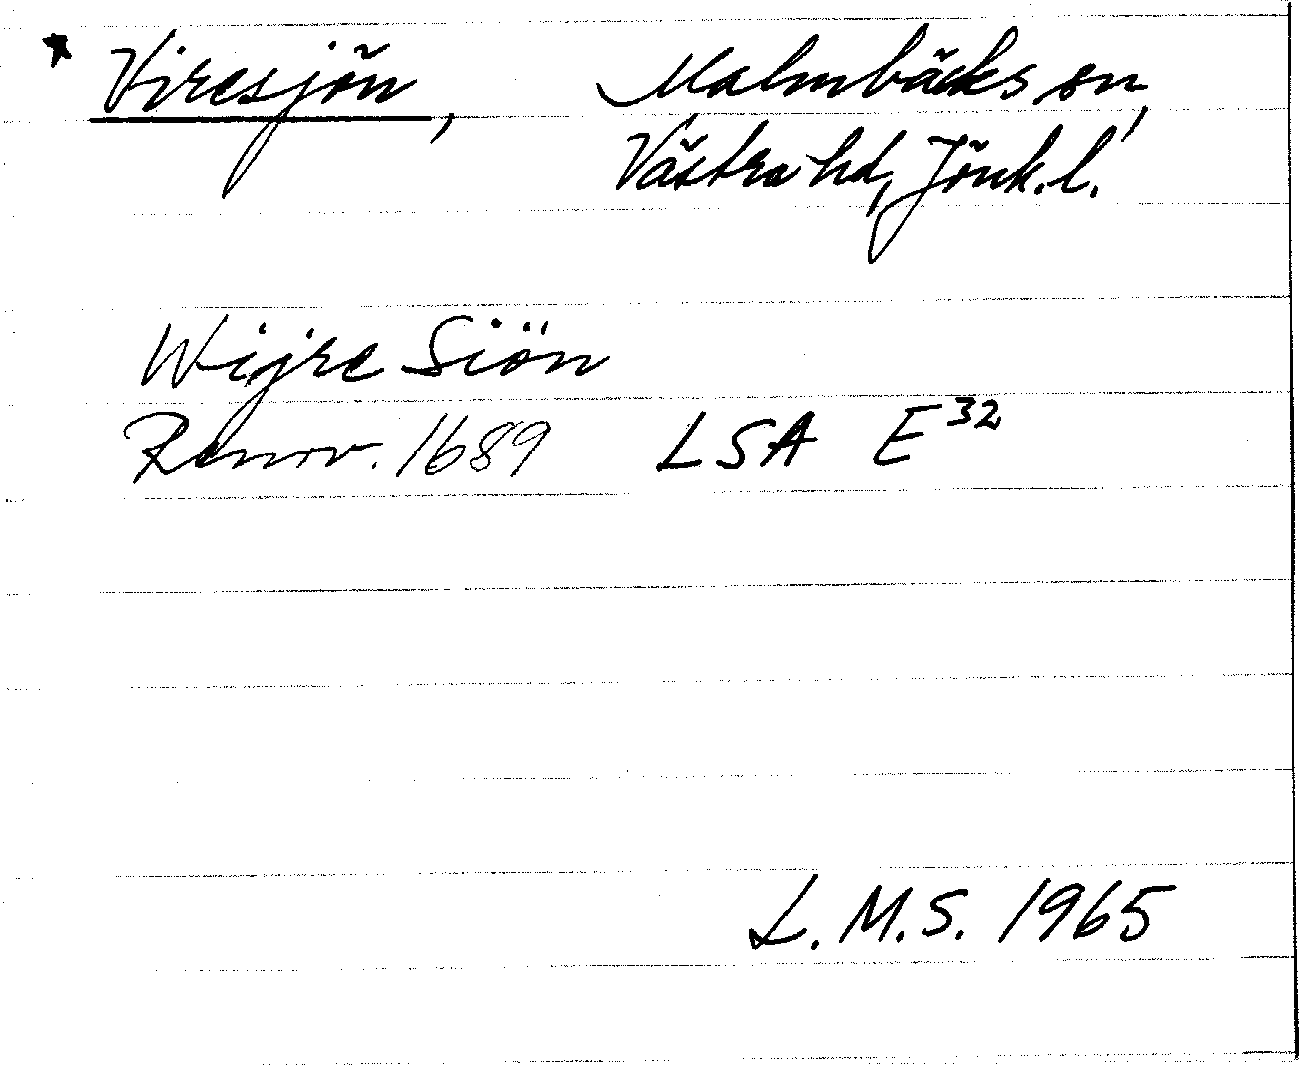 * Viresjön, Malmbäcks sn,
Västra hd, Jönk. l.
Wijre Siön
Renov. 1689 LSA E32
L.M.S. 1965